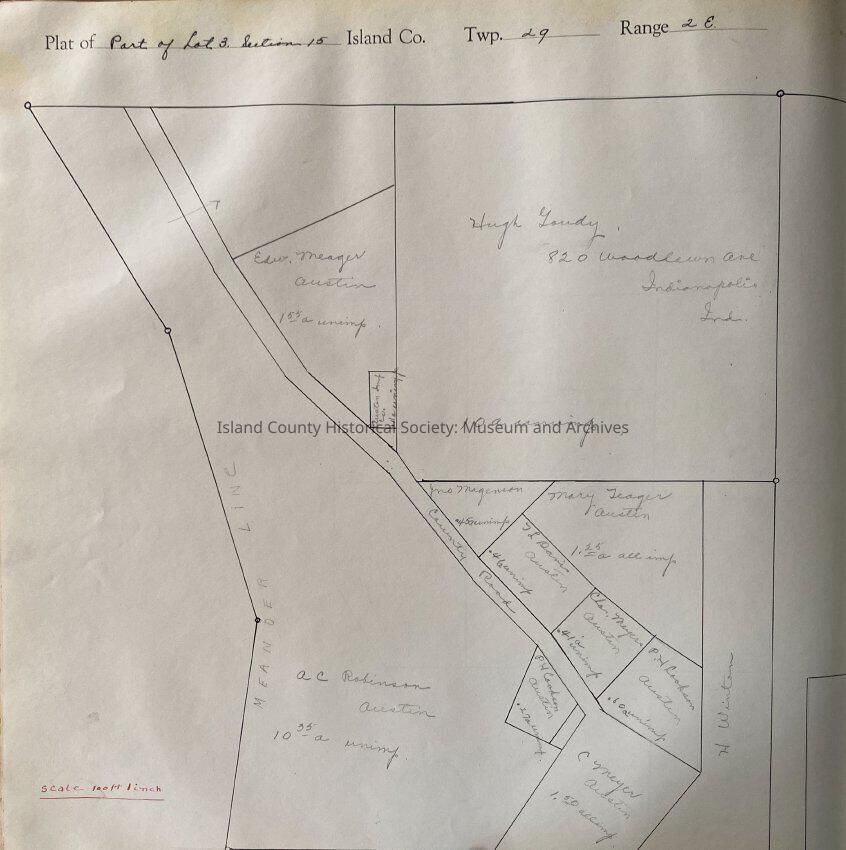 Plat of Part of Lot 3. Section 15 Island Co. Twp. 29 Range 2 E.
Hugh Goudy.
820 Woodlawn Ave
Indianapolis
Ind.
Edw. Meager
Austin
1 55 a unimp.
Island County Historical Society: Museum and Archives
Jno Magenson
.45a unimp
Mary Teager
Austin
1.25 a all imp
Davis
Austin
.46 unimp
County Road
Chas. Meyers
Austin
.41a unimp
P. H. Cookson
Austin
.60a unimp
P H Cookson
Austin
unimp.
MEANDER LINE
A C Robinson
Austin
10 35 a unimp.
H Winton
C Meyer
Austin
1.50 all imp.
Scale 100ft 1 inch